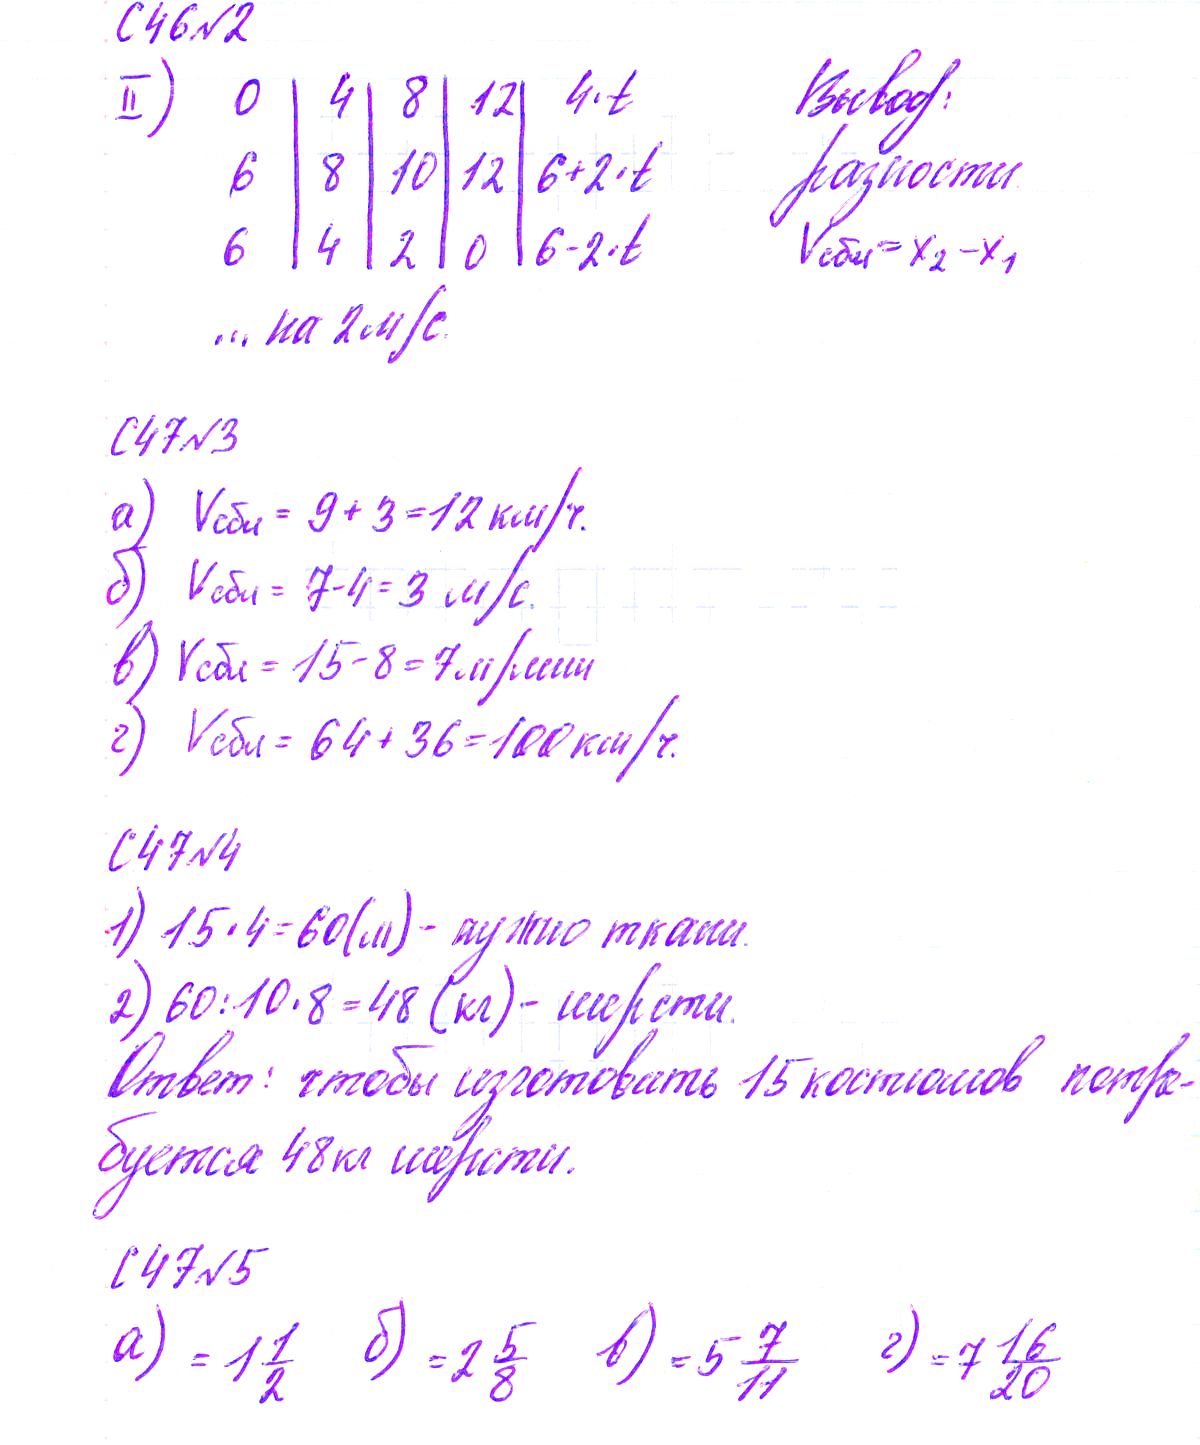 С46№2
II) 0 | 4 | 8 | 12 | 4·t Вывод:
6 | 8 | 10 | 12 | 6+2·t разности
6 | 4 | 2 | 0 | 6-2·t Vсбл=x₂-x₁
... на 2м/с.
С47№3
а) Vсбл = 9+3=12 км/ч.
б) Vсбл = 7-4=3 м/с.
в) Vсбл = 15-8=7м/мин
г) Vсбл = 64+36=100км/ч.
С47№4
1) 15·4=60(м)- нужно ткани.
2) 60:10·8=48 (кг)- шерсти.
Ответ: чтобы изготовать 15 костюмов потре-
буется 48кг шерсти.
С47№5
а) =1 1/2 б) =2 5/8 в) =5 7/11 г) =7 16/20